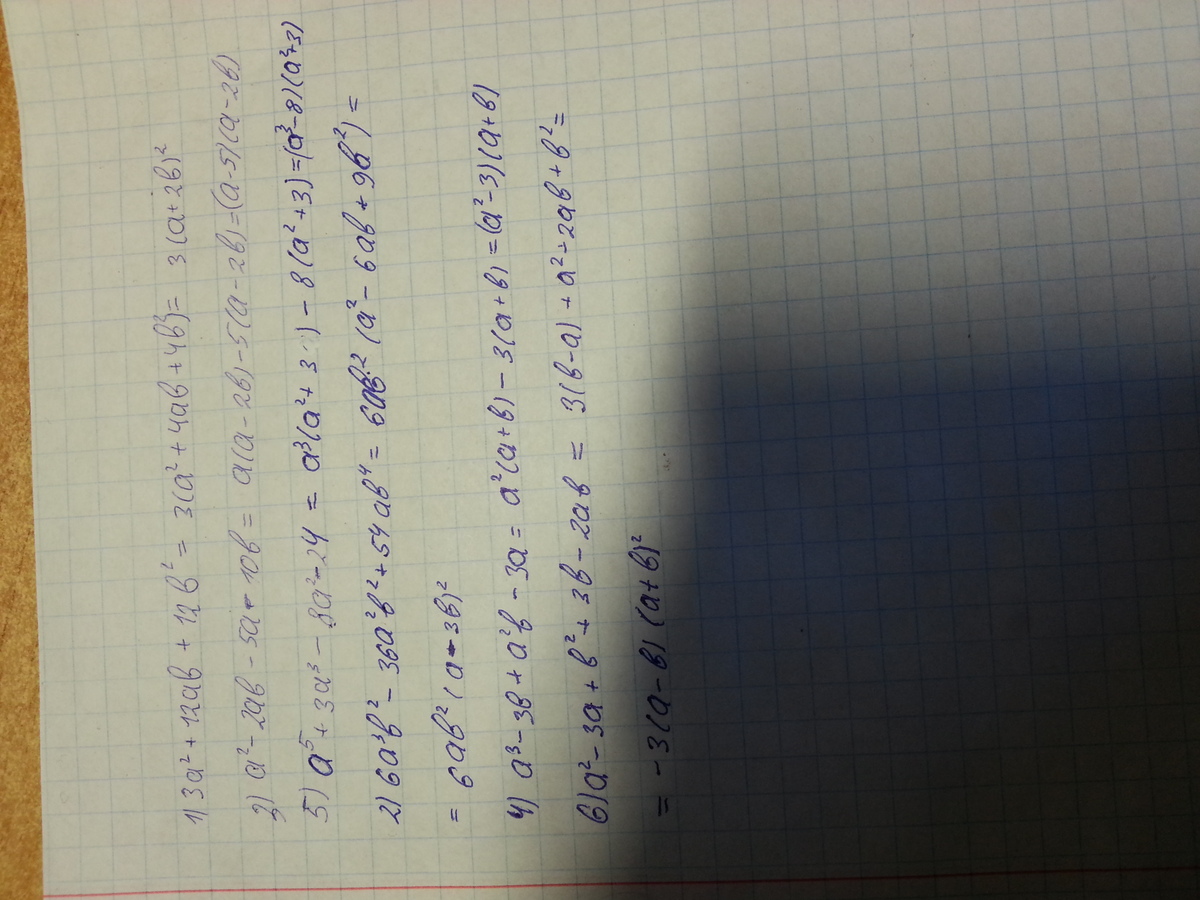 1) 3a² + 12ab + 12b² = 3(a² + 4ab + 4b²) = 3(a + 2b)²
3) a² - 2ab - 5a - 10b = a(a - 2b) - 5(a - 2b) = (a - 5)(a - 2b)
5) a⁵ + 3a³ - 8a² - 24 = a³(a² + 3) - 8(a² + 3) = (a³ - 8)(a² + 3)
2) 6a³b² - 36a²b² + 54ab⁴ = 6ab² (a² - 6ab + 9b²) =
= 6ab² (a - 3b)²
4) a³ - 3b + a²b - 3a = a²(a + b) - 3(a + b) = (a² - 3)(a + b)
6) a² - 3a + b² + 3b - 2ab = 3(b - a) + a² - 2ab + b² =
= -3(a - b) (a + b)²